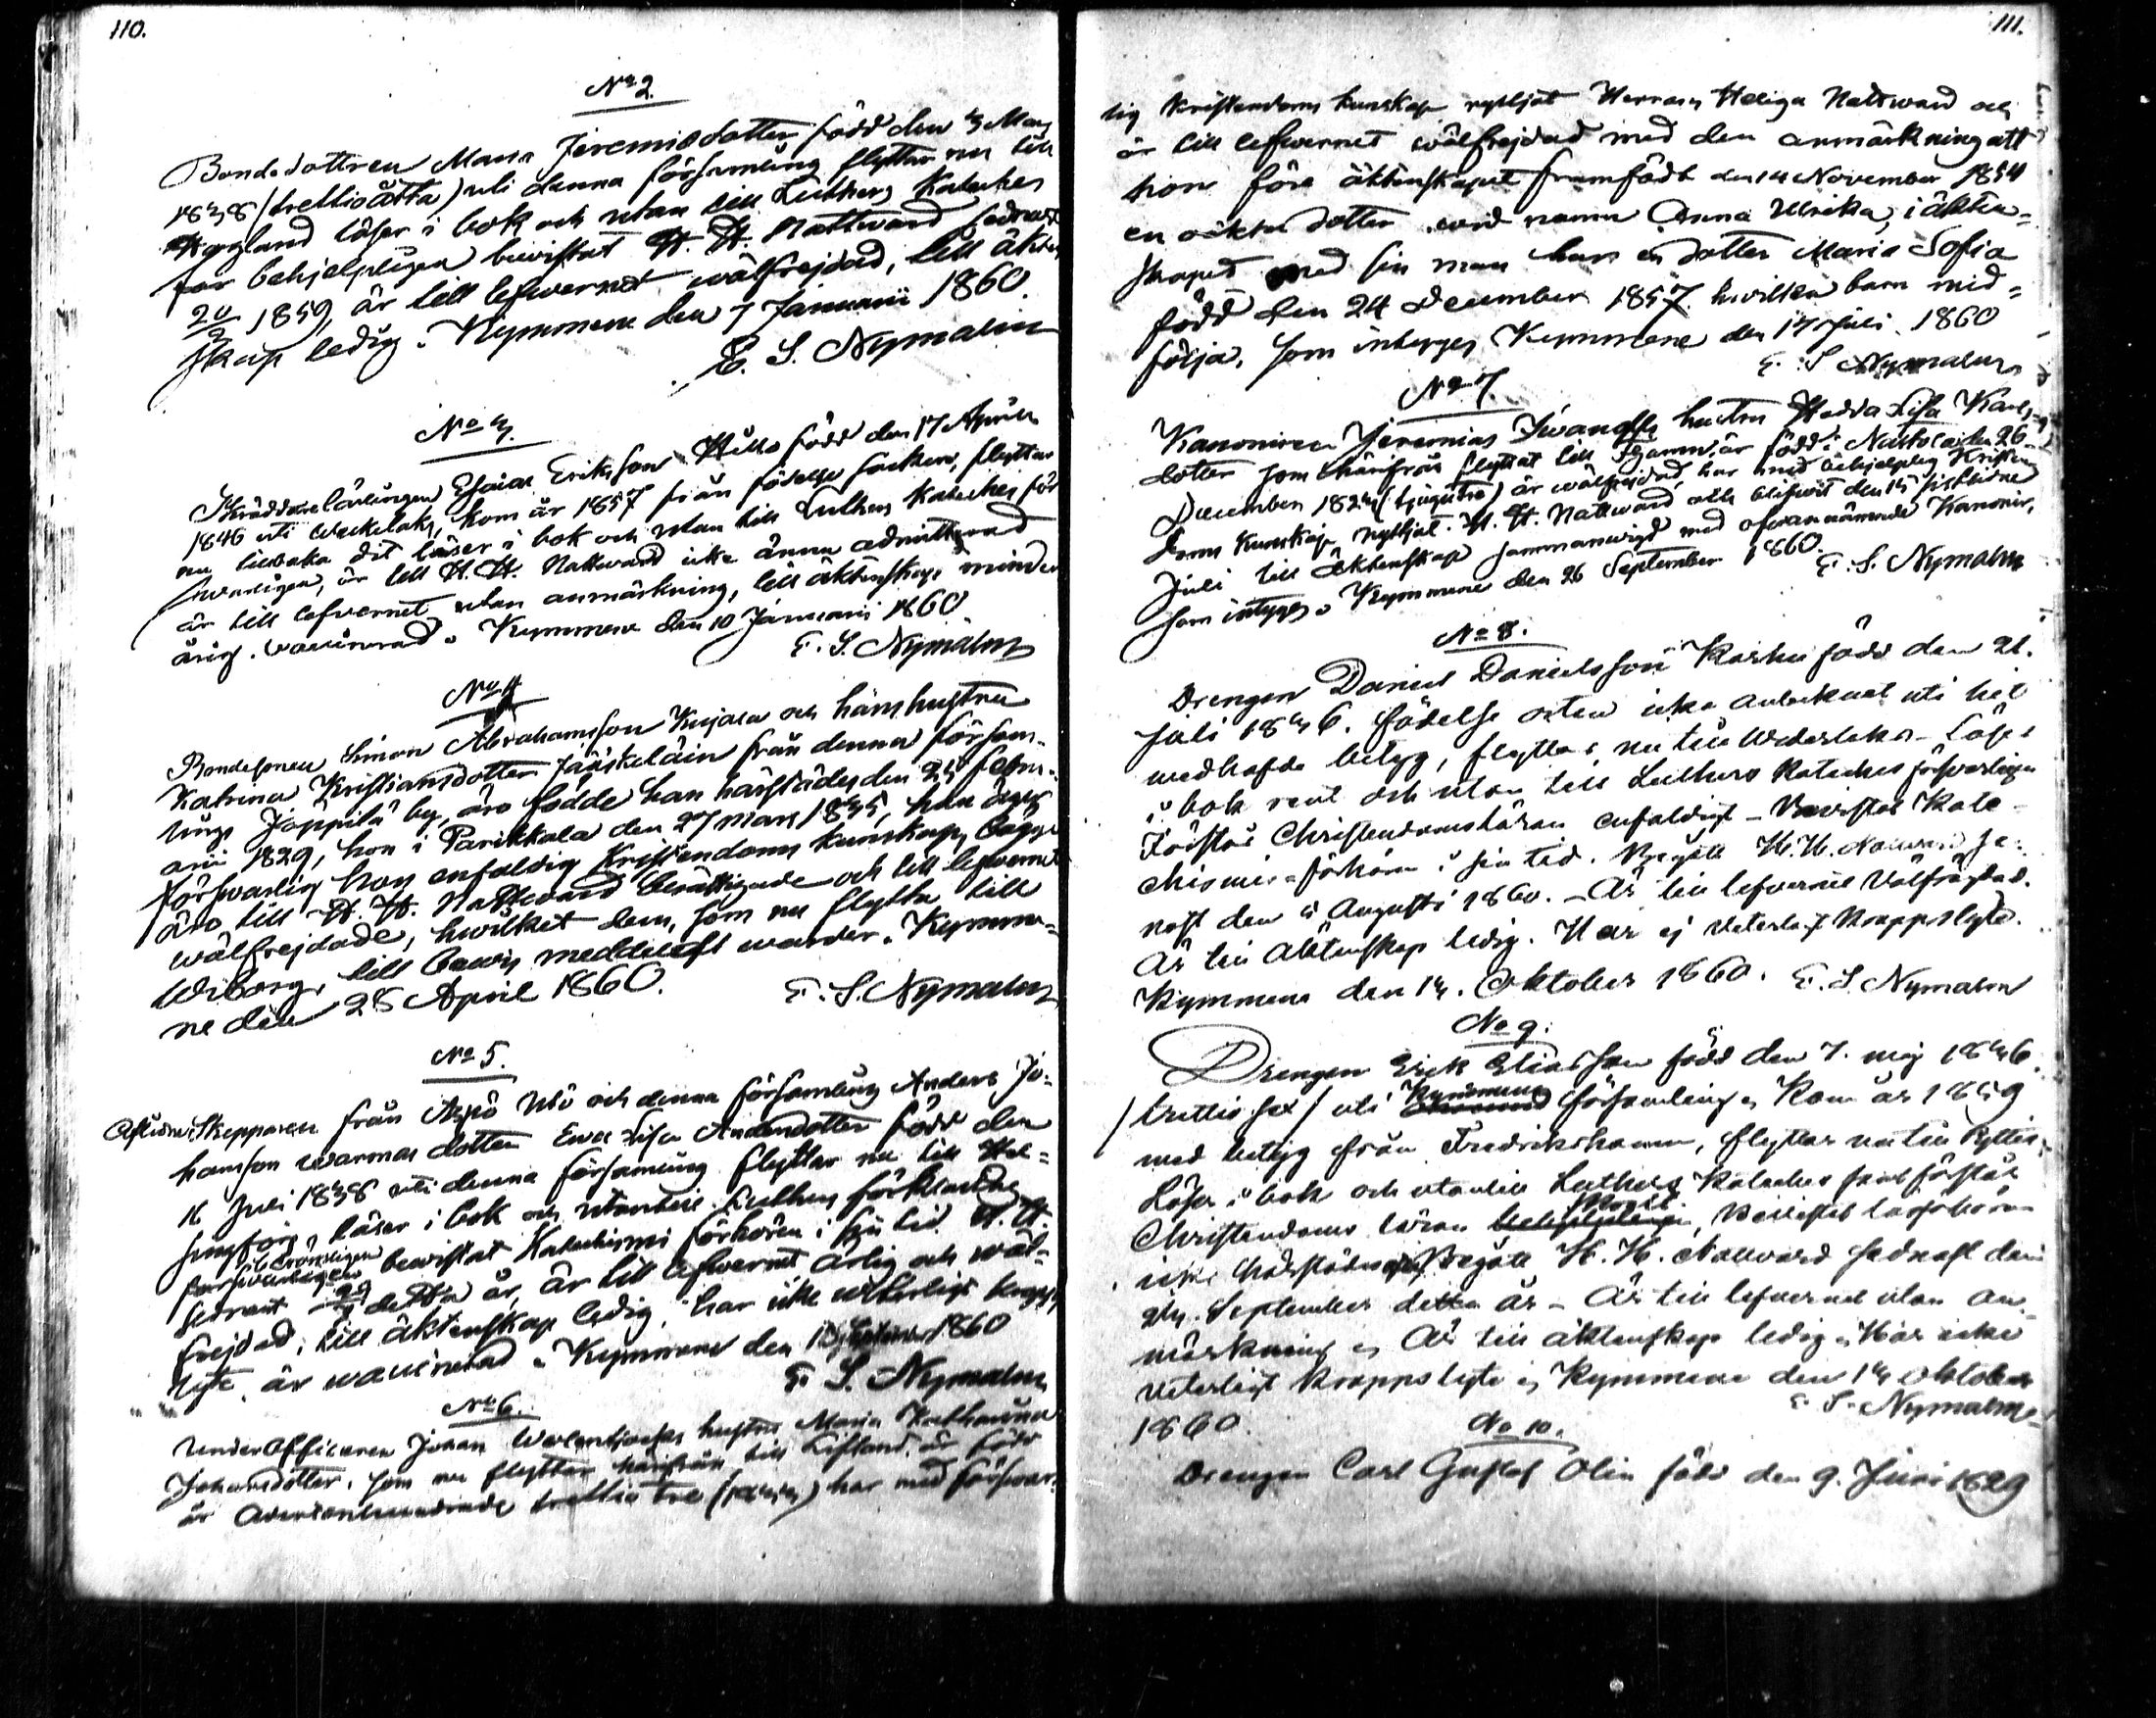 110.
No 2.
Bondedottren Maria Jeremiædotter född den 3 Maj
1838 (trettioåtta) uti denna församling flyttar nu till
Hogland läser i bok och utan till Luthers Kateches
för behjelpligen bevistat H. H. Nattward sednast
20/3 1859, är till lefvernet wälfrejdad, till äkten
skap ledig. Kymmene den 7 Januarii 1860.
E. S. Nymalm
No 3.
Skräddarelärlingen Esaias Eriksson Hills född den 17 Aprill
1846 uti Weckelaks, kom år 1857 från födelse socken, flyttar
nu tillbaka dit läser i bok och utan till Luthers Kateches för
swarligen, är till H. H. Nattward icke ännu admitterad
är till lefvernet utan anmärkning, till äktenskap minder
årig. vaccinerad. Kymmene den 10 Januarii 1860
E. S. Nymalm
No 4
Bondesonen Simon Abrahamsson Kujala och hans hustru
Katrina Kristiansdotter Jääskeläin från denna försam-
lings Jäppilä by, äro födde han härstädes den 25 Febru-
arii 1829, hon i Parikkala den 27 Mars 1835, han äger
förswarlig hon enfaldig Kristendoms kunskap, bägge
äro till H. H. Nattward berättigade och till lefvernet
wälfrejdade, hwilket dem, som nu flytta till
Wiborg, till bewis meddelas warder. Kymme-
ne den 28 April 1860.
E. S. Nymalm
No 5.
Aflidne Skepparen från Aspö Utö och denna församling Anders Jo-
hansson warmas dotter Ewa Lisa Andersdotter född den
16 Juli 1838 uti denna församling flyttar nu till Hel-
singfors läser i bok och utantill Luthers förklarade
försvarligen bevistat Katechismi förhören i sin tid H. H.
sednast detta år, är till lefvernet ärlig och wäl-
frejdad, till äktenskap ledig, har icke veterligt kropps
lyte, är waccinerad. Kymmene den 1860
E. S. Nymalm
No 6.
UnderOfficeren Johan hustru Maria Katharina
Johansdotter, som nu flyttar härifrån till Lifland, är född
år Adertonhundrade trettio tre (1833) har med försvar-
111.
lig Kristendoms kunskap nyttjat Herrans Heliga Nattward och
är till lefwernet wälfrejdad med den anmärkning att
hon före äktenskapet framfödt den 14 November 1854
en oäkta dotter wid namn Anna Ulrika, i äkten-
skapet med sin man har en dotter Maria Sofia
född den 24 December 1857 hwilka barn med-
följa, som intyges Kymmene den 17 Juli 1860
E. S Nymalm
No 7.
Kanonieren Jeremias Iwanoffs hustru Hedda Lisa Karls-
dotter som härifrån flyttat till Hamn, är född i Nastola den 26
December 1823 (tjugutre) är wälfrejdad, har med behjelplig Kristen
doms Kunskap nyttjat H. H. Nattward och blifwit den 15 sistlidne
Juli till äktenskap sammanwigd med ofwannämnde Kanonier,
som intyges. Kymmene den 26 September 1860.
E. S. Nymalm
No 8.
Drengen Daniel Danielsson Karhu född den 21.
Juli 1836. födelse orten icke antecknat uti hit
medhafde betyg, flyttar nu till Wederlaks - Läser
i bok rent och utan till Luthers Kateches försvarligen
Förstår Christendomsläran enfaldigt - Bevistat Kate-
chismiförhören i sin tid. Begått H. H. Nattward se-
nast den 5 Augusti 1860. - Är till lefvernet Välfräjdad.
Är till äktenskap ledig. Har ej veterligt Kroppslyte.
Kymmene den 13. Oktober 1860. E. S. Nymalm
No 9.
Drengen Erik Eliasson född den 7. maj 1836
/trettiosex/ uti Kymmene församling, Kom år 1859
med betyg från Fredrikshamn, flyttar nu till Pyttis.
Läser i bok och utantill Luthers Kateches samt förstår
Christendoms läran svagt, Bevistat läsförhören
icke härstädes, Begått H. H. Nattvard sednast den
23. September detta år - Är till lefvernet utan an-
märkning, Är till äktenskap ledig, Har icke
veterligt Kroppslyte, Kymmene den 13 Oktober
1860.
E. S. Nymalm
No 10.
Drengen Carl Gustaf Olin född den 9. Juni 1829